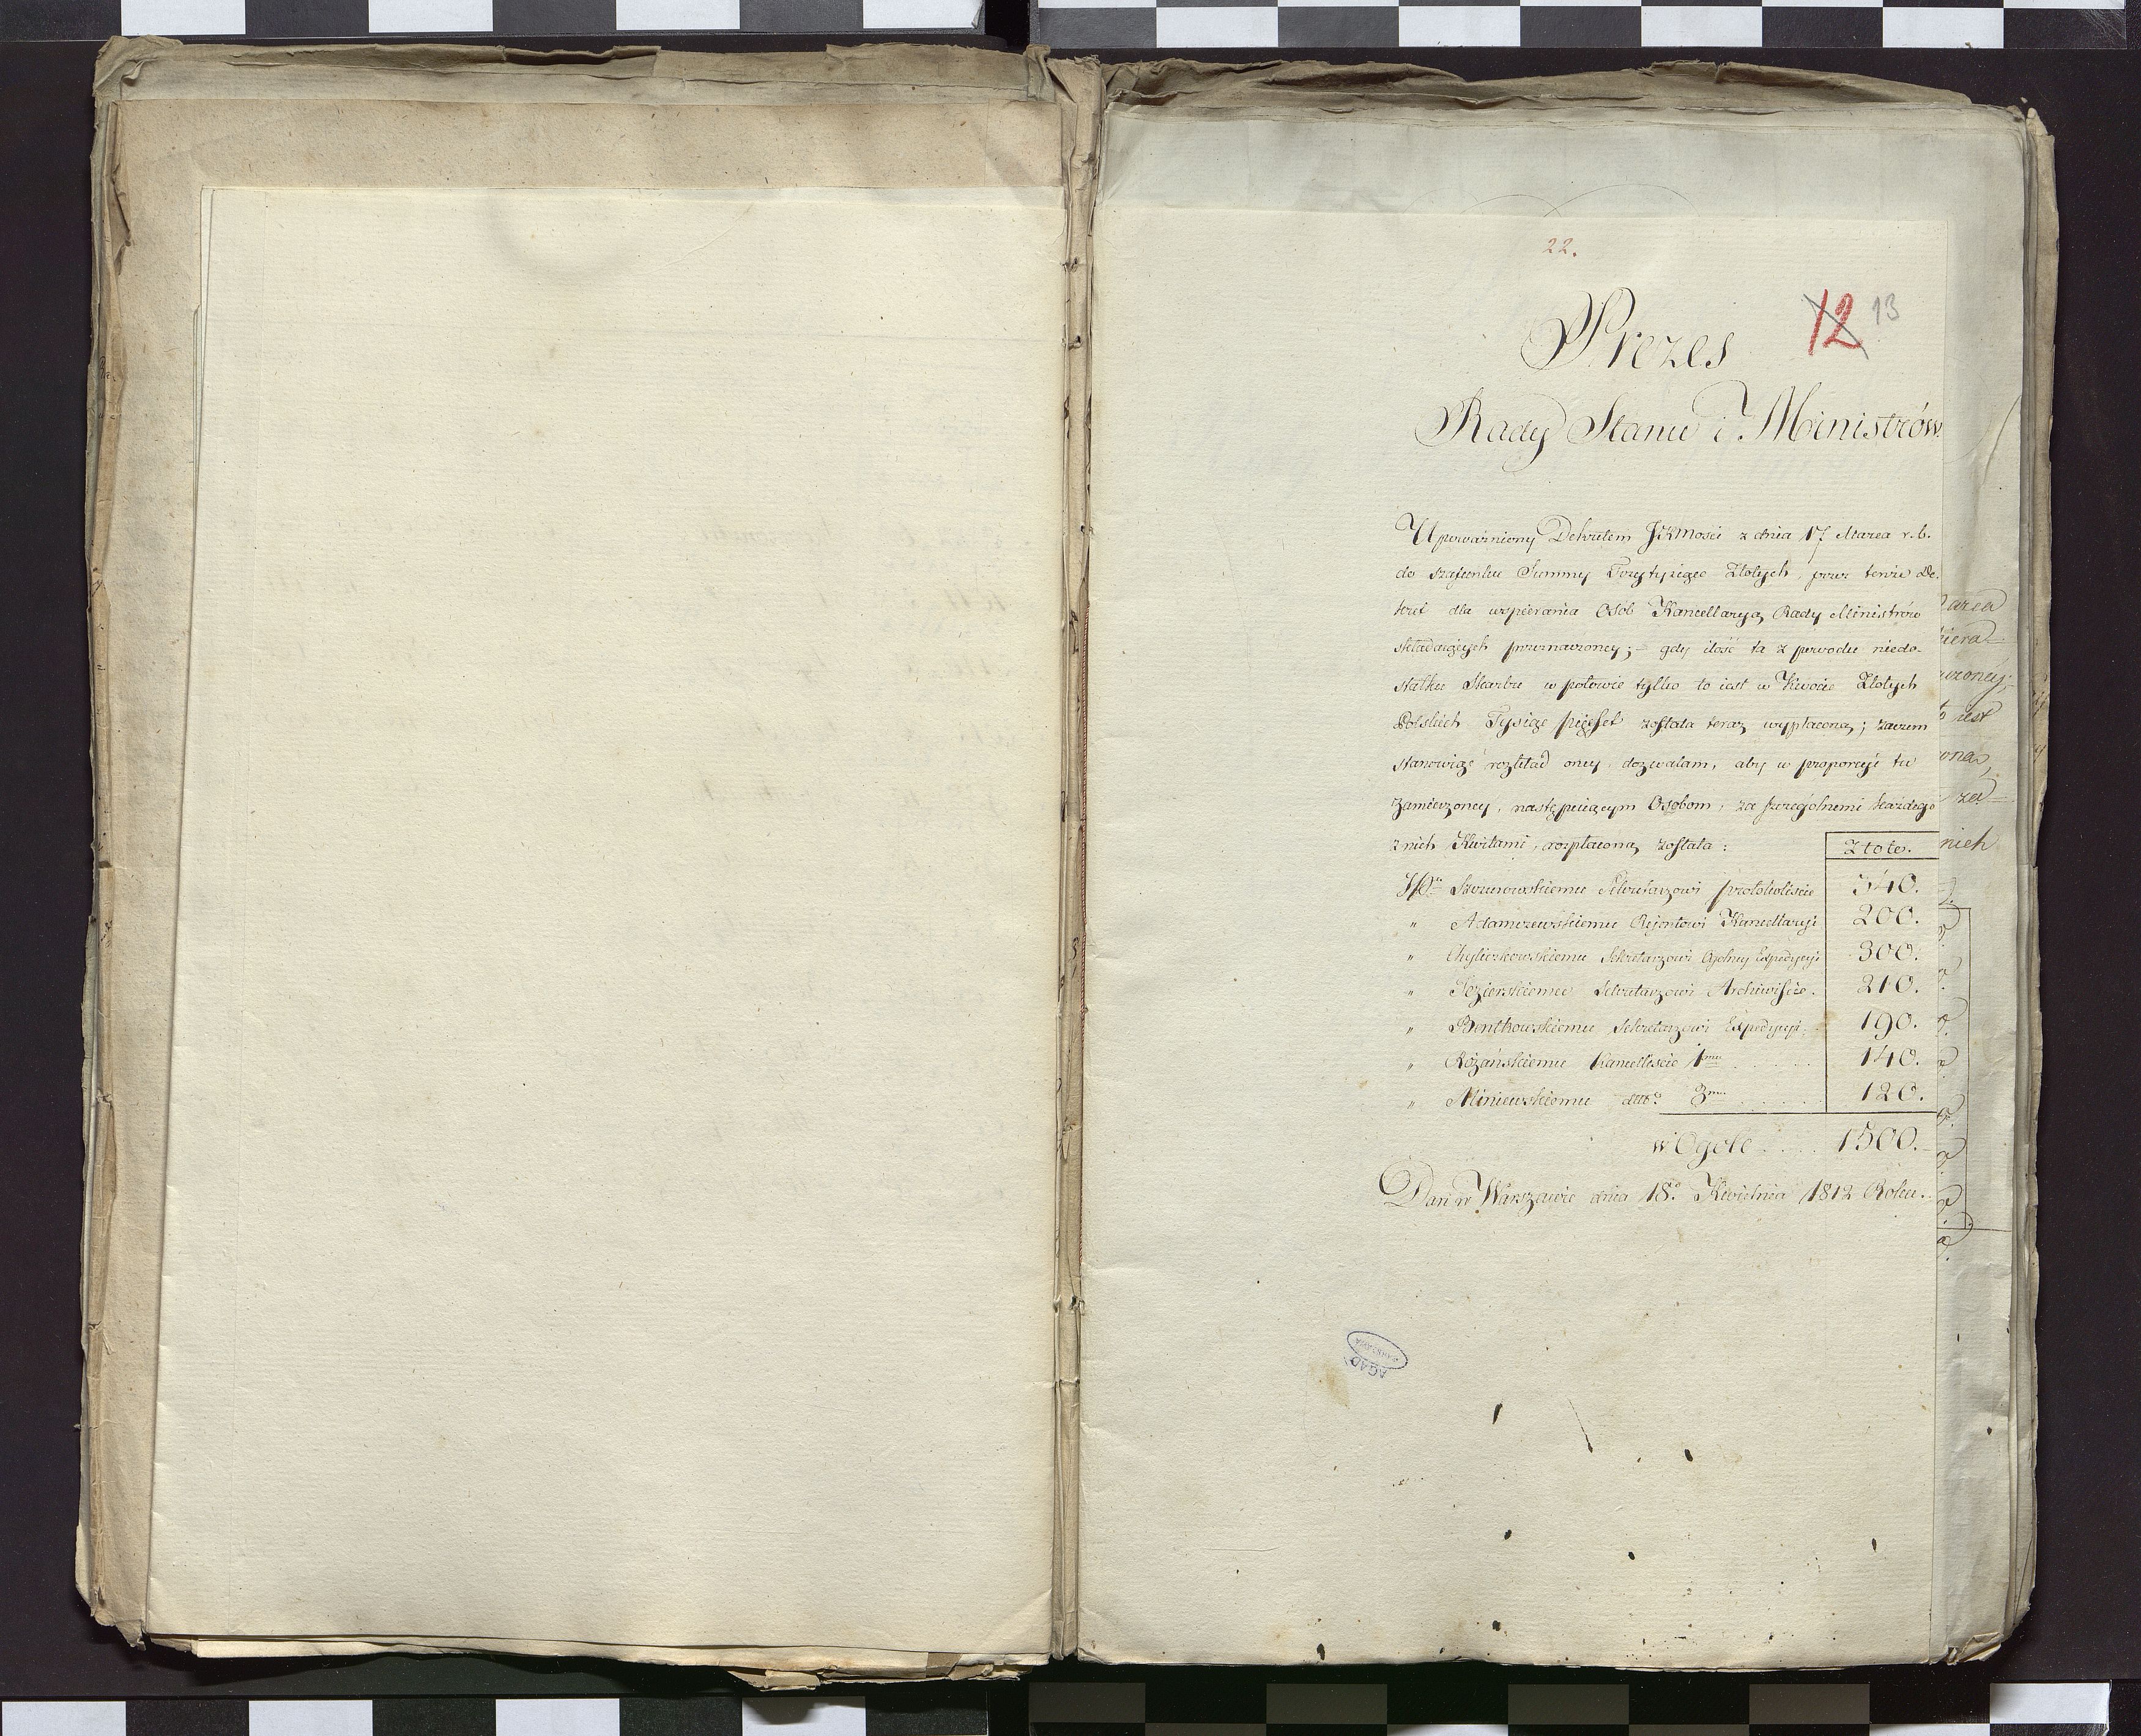 22.
12 13
Prezes
Rady Stanu i Ministrów.
Upoważniony Dekretem JKMości z dnia 17 Marca r. b.
do szafunku Summy Trzytysięce Złotych, przez tenże De-
kret dla wspierania Osób Kancellaryą Rady Ministrów
składaiących przeznaczoney; – gdy ilość ta z powodu niedo-
statku Skarbu w połowie tylko to iest w Kwocie Złotych
Polskich Tysiąc pięćset została teraz wypłaconą; zaczem
stanowiąc rozkład oney, dozwalam, aby w proporcyi tu
zamieszczoney, następuiącym Osobom, za szczególnemi każdego
z nich Kwitami, rozpłaconą została:
Złote.
Sekretarzowi protokoliście 340.
" Adamczewskiemu Rejentowi Kancellaryi 200.
" Chyliczkowskiemu Sekretarzowi Ogólney Expedycyi 300.
" Jezierskiemu Sekretarzowi Archiwiście. 210.
" Bentkowskiemu Sekretarzowi Expedycyi 190.
" Różańskiemu Kancelliście 1mu . . . . . 140.
" Miniewskiemu dtto 3mu . . . . . 120.
w Ogóle . . . . 1500.
Dan w Warszawie dnia 18o Kwietnia 1812 Roku.
AGAD
WARSZAWA
iest
za
nich